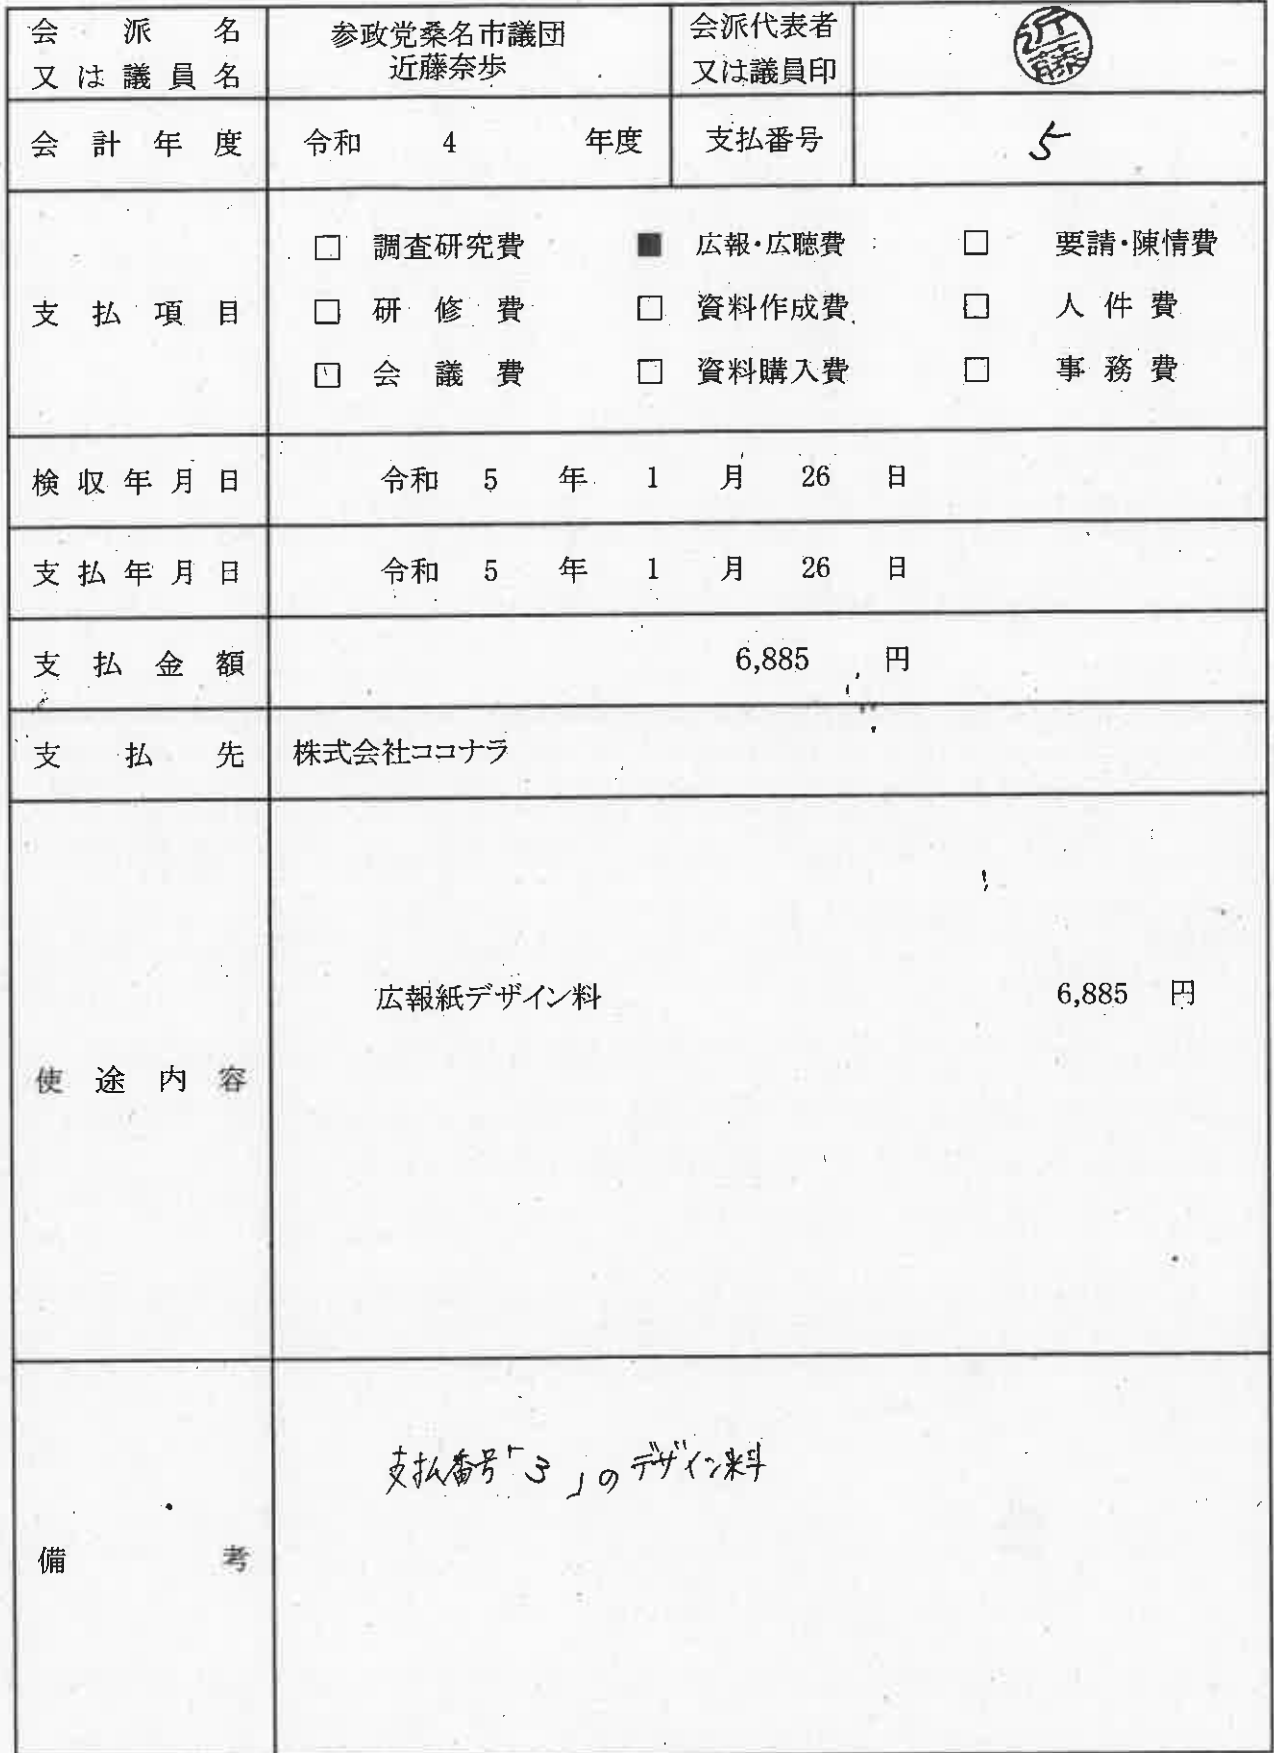 会派名
又は議員名
参政党桑名市議団
近藤奈歩
会派代表者
又は議員印
近藤
会計年度
令和 4 年度
支払番号
5
支払項目
□ 調査研究費 ■ 広報・広聴費 □ 要請・陳情費
□ 研修費 □ 資料作成費 □ 人件費
□ 会議費 □ 資料購入費 □ 事務費
検収年月日
令和 5 年 1 月 26 日
支払年月日
令和 5 年 1 月 26 日
支払金額
6,885 円
支払先
株式会社ココナラ
使途内容
広報紙デザイン料 6,885 円
備考
支払番号「3」のデザイン料